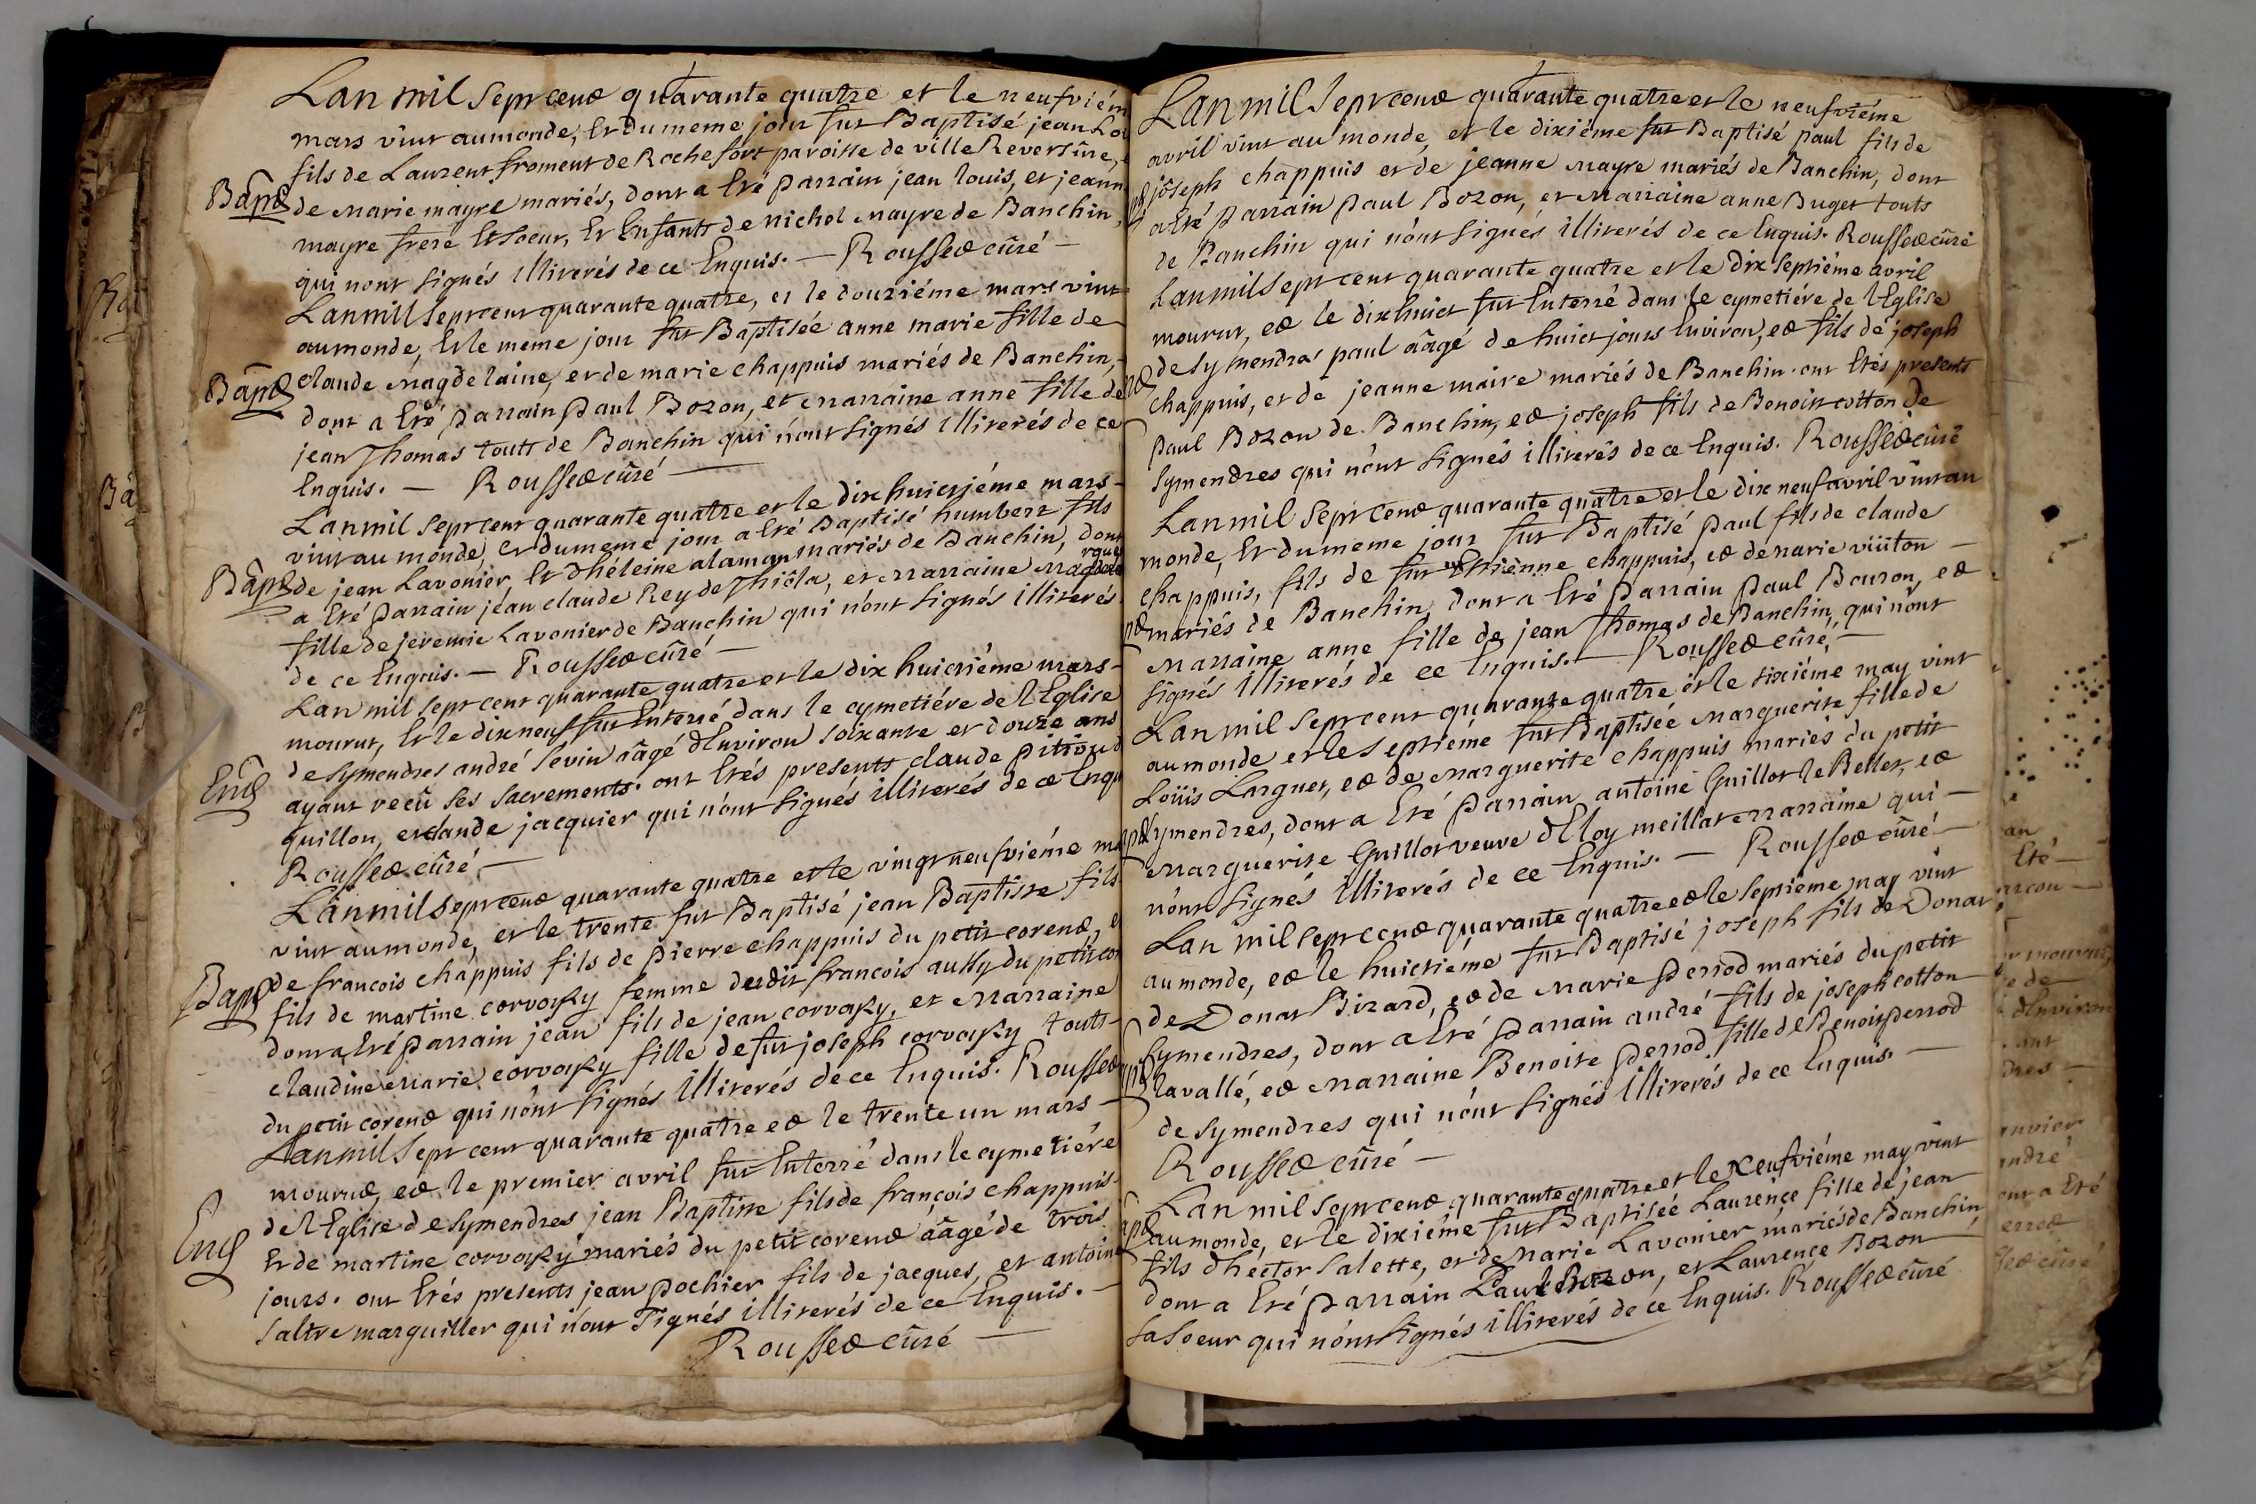 Lan mil septcent quarante quatre et le neufviém
mars vint aumonde, Et dumeme jour fut Baptisé jean Lou
fils de Laurent froment de Rochefort paroisse de ville Reversure,
Bapt de marie mayre mariés, dont a Eté parrain jean louis, et jeann
mayre frere Et soeur, Et Enfants de michel mayre de Banchin,
qui nont signés illiterés de ce Enquis. — Roussed curé —
Lanmil septcent quarante quatre, et le douziéme mars vint
aumonde, Et le meme jour fut Baptisée anne marie fille de
Bapt claude magdelaine, et de marie chappuis mariés de Banchin,
dont a Eté parrain paul Bozon, et marraine anne fille de
jean Thomas touts de Banchin qui n'ont signés illiterés de ce
Enquis. — Roussed curé —
Lanmil septcent quarante quatre et le dixhuictiéme mars
vint au monde, Et dumeme jour a Eté Baptisé humbert fils
Bapt de jean Lavonier, Et d'héleine alaman mariés de Banchin, dont
a Eté parrain jean claude Rey de Thiola, et marraine
fille de jeremie Lavonier de Banchin qui n'ont signés illiterés
de ce Enquis. — Roussed curé —
Lan mil septcent quarante quatre et le dix huictiéme mars
mourut, Et le dix neuf fut Enterré dans le cymetiére de l'Eglise
de symendres andré sevin aâgé d'Environ soixante et douze ans
Ent ayant recû ses sacrements. ont Etés presents claude pition
quillon, et claude jacquier qui n'ont signés illiterés de ce Enqu
Roussed curé —
Lanmil septcent quarante quatre et le vingtneufviéme ma
vint aumonde, et le trente fut Baptisé jean Baptiste fils
Bapt de francois chappuis fils de pierre chappuis du petit corent, e
fils de martine corvoysy femme dudit francois aussy du petit cor
dont a Eté parrain jean fils de jean corvoysy, et marraine
claudine marie corvoysy fille de fut joseph corvoysy touts
du petit corent qui n'ont signés illiterés de ce Enquis. Roussed
Lanmil septcent quarante quatre et le trente un mars
mourut, et le premier avril fut Enterré dans le cymetiére
de l'Eglise de symendres jean Baptiste fils de françois chappuis
Ent Et de martine corvoysy mariés du petit corent aâgé de trois
jours. ont Etés presents jean pochier fils de jacques, et antoine
salive marguiller qui n'ont signés illiterés de ce Enquis.
Roussed curé —
Lan mil septcent quarante quatre et le neufviéme
avril vint au monde, et le dixiéme fut Baptisé paul fils de
joseph chappuis et de jeanne mayre mariés de Banchin, dont
a Eté parrain paul Bozon, et marraine anne Buget touts
de Banchin qui n'ont signés illiterés de ce Enquis. Roussed curé
Lanmil septcent quarante quatre et le dix septiéme avril
mourut, et le dixhuict fut Enterré dans le cymetiére de l'Eglise
de symendres paul aâgé de huict jours Environ, et fils de joseph
chappuis, et de jeanne maire mariés de Banchin. ont Etés presents
paul Bozon de Banchin, et joseph fils de Benoist cotton de
symendres qui n'ont signés illiterés de ce Enquis. Roussed curé
Lanmil septcent quarante quatre et le dix neuf avril vint au
monde, Et dumeme jour fut Baptisé paul fils de claude
chappuis, fils de fut Etienne chappuis, et de marie viiiton —
mariés de Banchin, dont a Eté parrain paul Bouzon, et
marraine anne fille de jean Thomas de Banchin, qui n'ont
signés illiterés de ce Enquis. — Roussed curé, —
Lan mil septcent quarante quatre et le sixiéme may vint
aumonde et le septiéme fut Baptisée marguerite fille de
Loüis Larguet, et de marguerite chappuis mariés du petit
symendres, dont a Eté parrain antoine Guillot le Bellet, et
marguerite Guillot veuve d'Eloy meillat marraine qui —
n'ont signés illiterés de ce Enquis. — Roussed curé —
Lan mil septcent quarante quatre et le septiéme may vint
aumonde, et le huictiéme fut Baptisé joseph fils de Donat
de Donat Bizard, et de marie perrod mariés du petit
symendres, dont a Eté parrain andré fils de joseph cotton
lavallé, et marraine Benoite perrod fille de Benoist perrod
de symendres qui n'ont signés illiterés de ce Enquis. —
Roussed curé —
Lan mil septcent quarante quatre et le neufviéme may vint
aumonde, et le dixiéme fut Baptisée Laurence fille de jean
fils d'hector salette, et de marie Lavonier mariés de Banchin
dont a Eté parrain paul Bozon, et Laurence Bozon
sa soeur qui n'ont signés illiterés de ce Enquis. Roussed curé